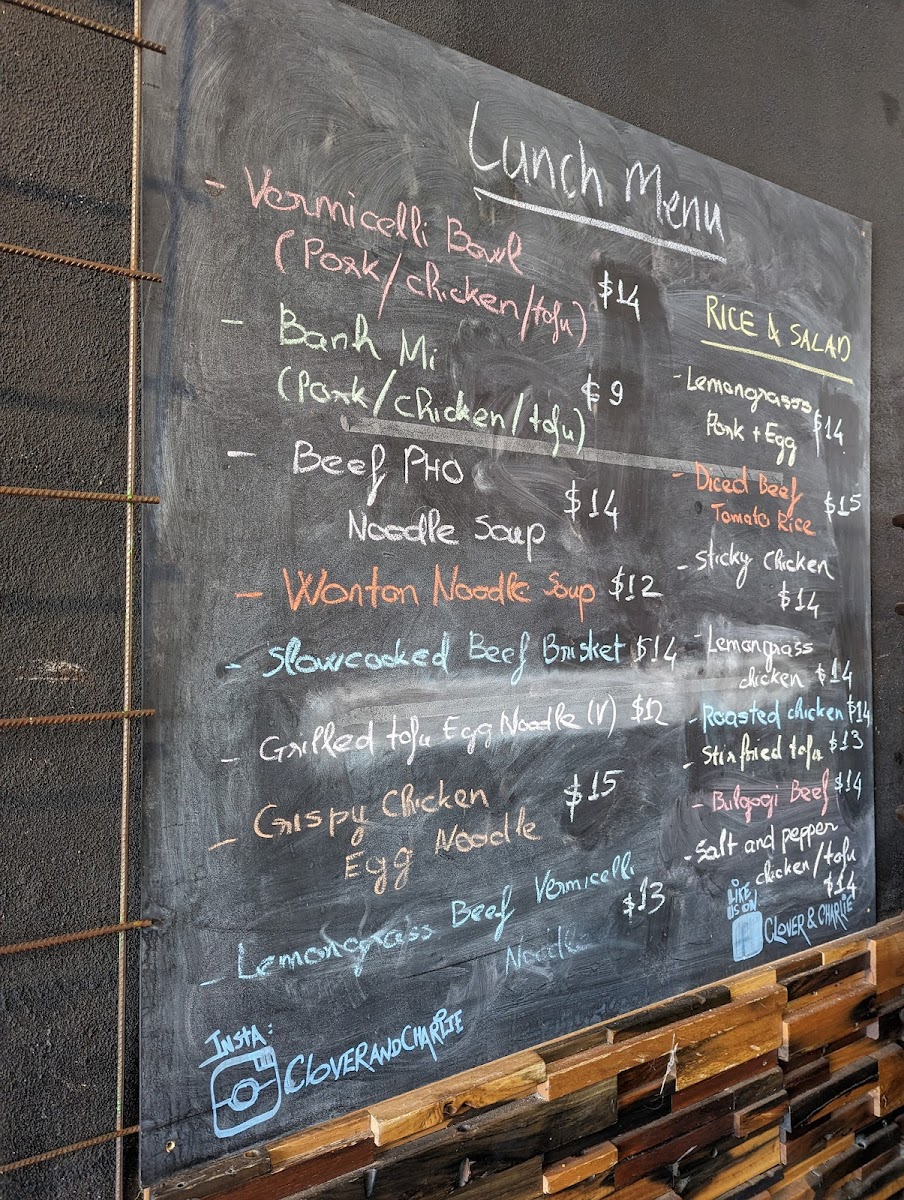 Lunch Menu
- Vermicelli Bowl
(Pork/chicken/tofu) $14
- Banh Mi
(Pork/chicken/tofu) $9
- Beef PHO
Noodle Soup $14
- Wonton Noodle Soup $12
- Slowcooked Beef Brisket $14
- Grilled tofu Egg Noodle (V) $12
- Crispy Chicken $15
Egg Noodle
- Lemongrass Beef Vermicelli
Noodle $13
INSTA:
CLOVERANDCHARLIE
RICE & SALAD
- Lemongrasss
Pork + Egg $14
- Diced Beef
Tomato Rice $15
- Sticky Chicken
$14
- Lemongrass
chicken $14
- Roasted chicken $14
- Stirfried tofu $13
- Bulgogi Beef $14
- Salt and pepper
chicken/tofu
$14
LIKE
US ON
f CLOVER & CHARLIE